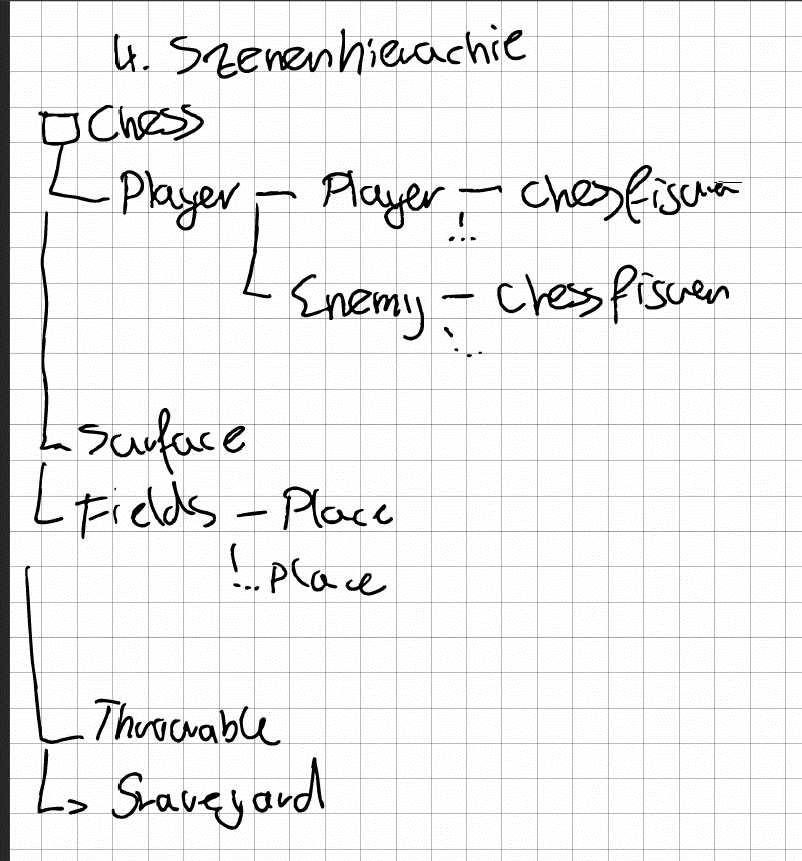 4. Szenenhierachie
Chess
Player — Player — Chessfiguren
Enemy — Chessfiguren
Surface
Fields — Place
Place
Throwable
Graveyard